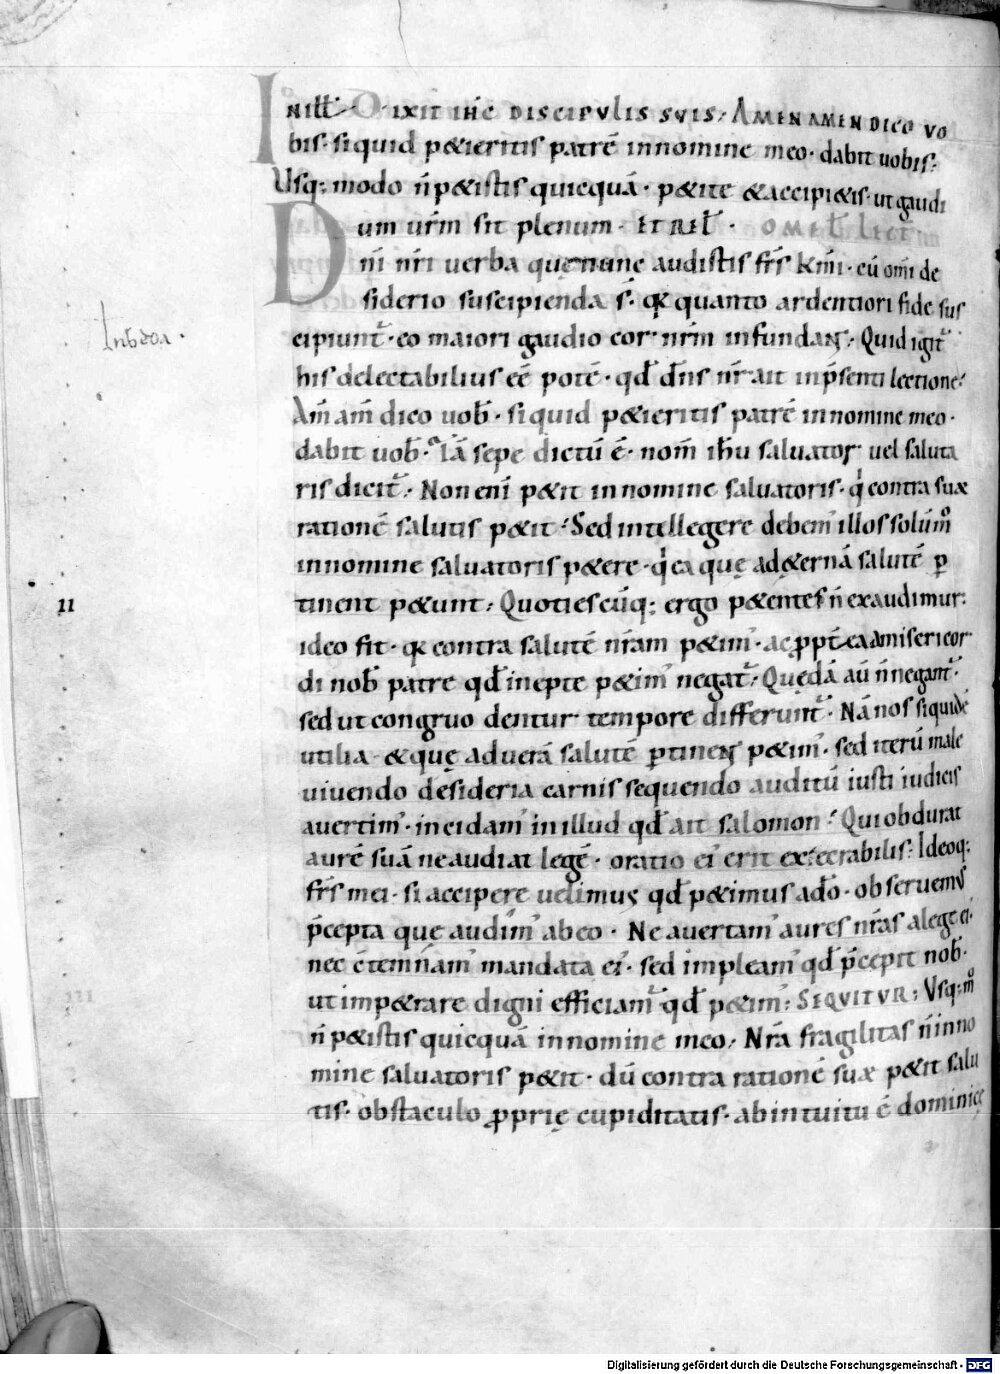 IN ILL̄ · DIXIT IH̄C DISCIPVLIS SVIS; AMEN AMEN DICO VO
bis· siquid p&ieritis patrē innomine meo· dabit uobis;
Usq; modo n̄ p&istis quicquā· p&ite &accipi&is· ut gaudi
um ur̄m sit plenum· ET REL̄· OMEL̄ LECT̄·
DN̄I nr̄i uerba quę nunc audistis fr̄s km̄i· cū om̄i de
siderio suscipienda s̄· qꝛ quanto ardentiori fide sus
cipiunt᷑· eo maiori gaudio cor nr̄m infundaɴᴛ; Quid igit᷑
his delectabilius eē potē· qđ dn̄s nr̄ ait inp̄senti lectione;
Am̄ am̄ dico uob̄· siquid p&ieritis patrē innomine meo·
dabit uob̄· Iā sepe dictū ē· nom̄ ih̄u saluator uel saluta
ris dicit᷑; Non eni̅ p&it innomine saluatoris· qͥ contra suæ
rationē salutis p&it; Sed intellegere debem᾽ illos solūm̊
innomine saluatoris p&ere· qͥ ea quę ad&ernā salutē ꝑ
tinent p&unt; Quotiescūq; ergo p&entes n̄ exaudimur;
II
ideo fit· qꝛ contra salutē nr̄am p&im᾽· ac ꝓpt̄ ea amisericor
di nob̄ patre qđ inepte p&im᾽ negat᷑; Quędā aū n̄ negant᷑·
sed ut congruo dentur tempore differunt᷑· Nā nos siquidē
utilia· &quę aduerā salutē ꝑtineɴᴛ p&im᾽· sed iterū male
uiuendo desideria carnis sequendo auditū iusti iudicis
auertim᾽· incidam᾽ in illud qđ ait salomon; Qui obdurat
aurē suā ne audiat legē· oratio ei᾽ erit execrabilis; Ideoq;
fr̄s mei· si accipere uelimus qđ p&imus ad̄o· obseruem᾽
p̄cepta quę audim᾽ ab eo· Ne auertam᾽ aures nr̄as alege ei᾽
nec c̄temnam᾽ mandata ei᾽· sed impleam᾽ qđ p̄cepit nob̄·
ut imp&rare digni efficiam᷑ qđ p&im᾽; SEQVITVR; Vsq; m̊
n̄ p&istis quicquā innomine meo; Nr̄a fragilitas n̄ inno
mine saluatoris p&it· dū contra rationē suæ p&it salu
tis· obstaculo ꝓprię cupiditatis· ab intuitu ē dominicę